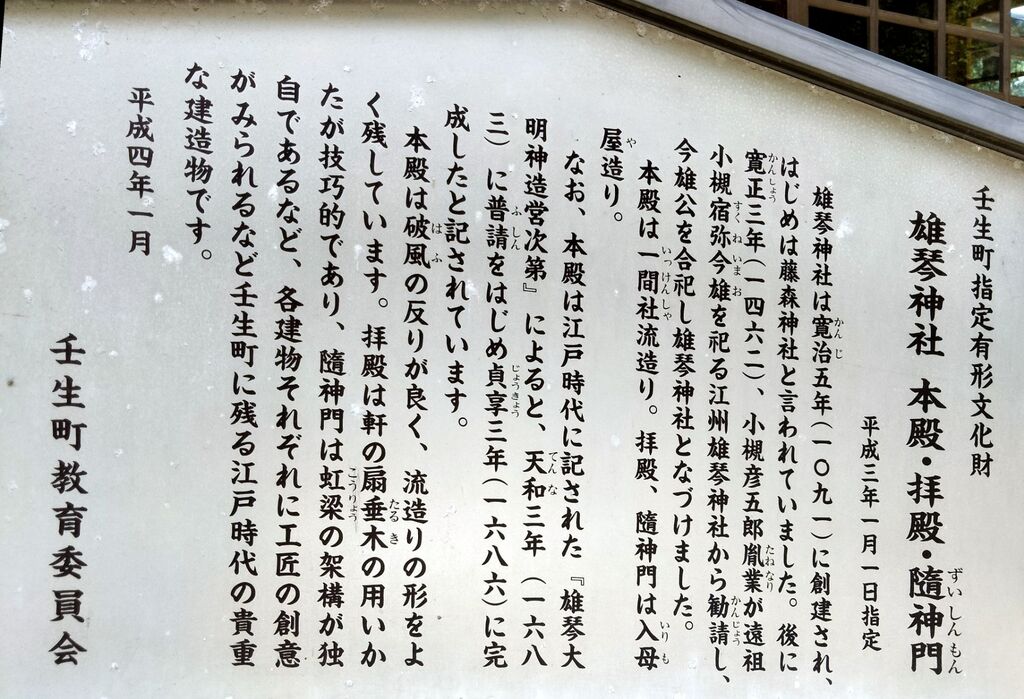 壬生町指定有形文化財
雄琴神社 本殿・拝殿・隨神門
ずいしんもん
平成三年一月一日指定
雄琴神社は寛治五年(一〇九一)に創建され、
かんじ
はじめは藤森神社と言われていました。後に
寛正三年(一四六二)、小槻彦五郎胤業が遠祖
かんしょう
たねなり
小槻宿弥今雄を祀る江州雄琴神社から勧請し、
すくねいまお
かんじょう
今雄公を合祀し雄琴神社となづけました。
本殿は一間社流造り。拝殿、隨神門は入母
いっけんしゃ
いりも
屋造り。
や
なお、本殿は江戸時代に記された『雄琴大
明神造営次第』によると、天和三年(一六八
てんな
三)に普請をはじめ貞享三年(一六八六)に完
ふしん
じょうきょう
成したと記されています。
本殿は破風の反りが良く、流造りの形をよ
はふ
く残しています。拝殿は軒の扇垂木の用いか
たるき
たが技巧的であり、隨神門は虹梁の架構が独
こうりょう
自であるなど、各建物それぞれに工匠の創意
がみられるなど壬生町に残る江戸時代の貴重
な建造物です。
平成四年一月
壬生町教育委員会